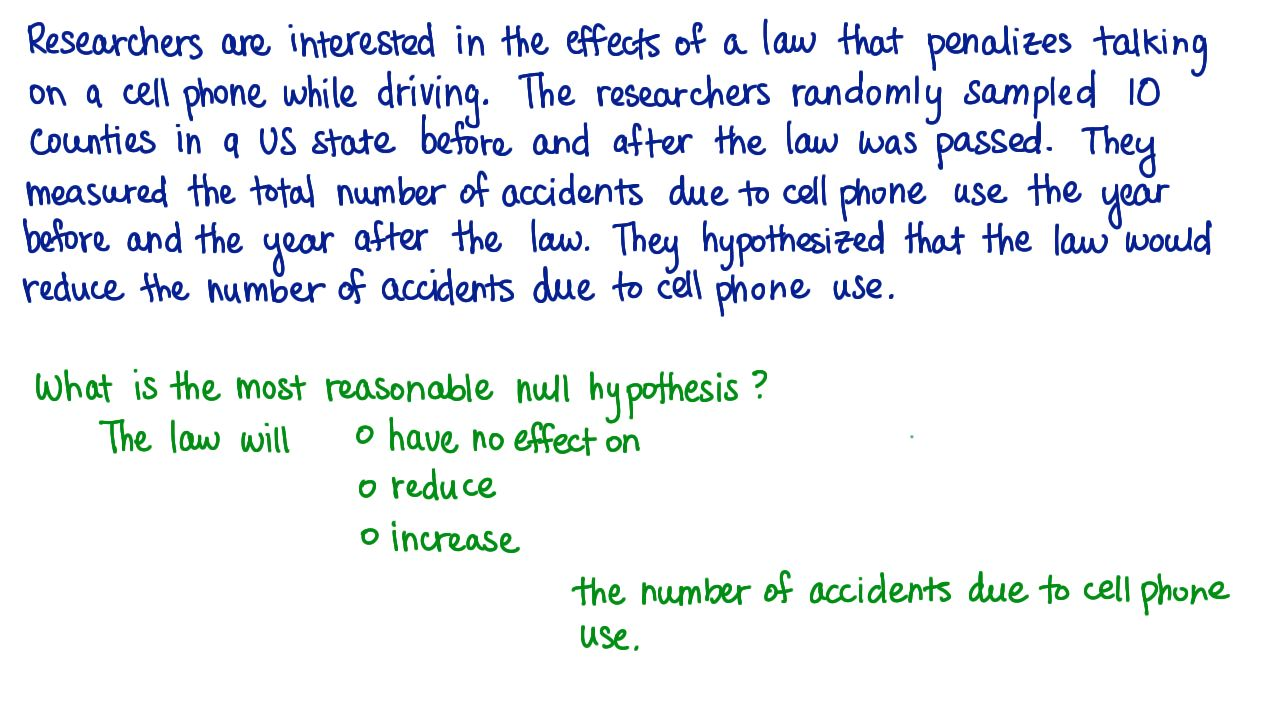 Researchers are interested in the effects of a law that penalizes talking
on a cell phone while driving. The researchers randomly sampled 10
counties in a US state before and after the law was passed. They
measured the total number of accidents due to cell phone use the year
before and the year after the law. They hypothesized that the law would
reduce the number of accidents due to cell phone use.
What is the most reasonable null hypothesis?
The law will o have no effect on
o reduce
o increase
the number of accidents due to cell phone
use.